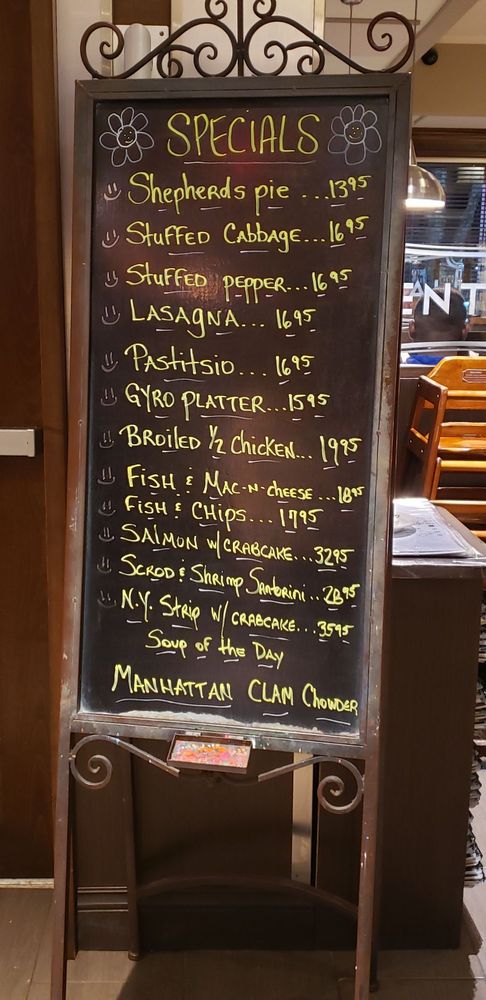 SPECIALS
Shepherds pie ...13.95
Stuffed Cabbage...16.95
Stuffed pepper...16.95
LASAGNA... 16.95
Pastitsio... 16.95
GYRO PLATTER...15.95
Broiled 1/2 Chicken... 19.95
Fish & Mac-N-cheese...18.95
Fish & Chips... 17.95
Salmon w/ CRABCAKE...32.95
Scrod & Shrimp Santorini...28.95
N.Y. Strip w/ CRABCAKE...35.95
Soup of the Day
MANHATTAN CLAM CHOWDER
ANT